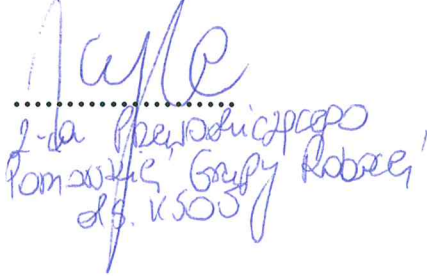 Z-ca Przewodniczącego
Pomorskiej Grupy Roboczej
ds. KSOŚ